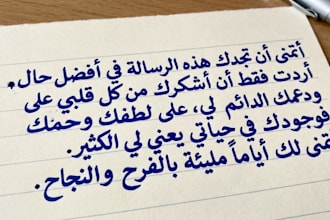 أتمنى أن تجدك هذه الرسالة في أفضل حال.
أردت فقط أن أشكرك من كل قلبي على
ودعمك الدائم لي، على لطفك وحمّك
فوجودك في حياتي يعني لي الكثير.
تمنى لك أياماً مليئة بالفرح والنجاح.